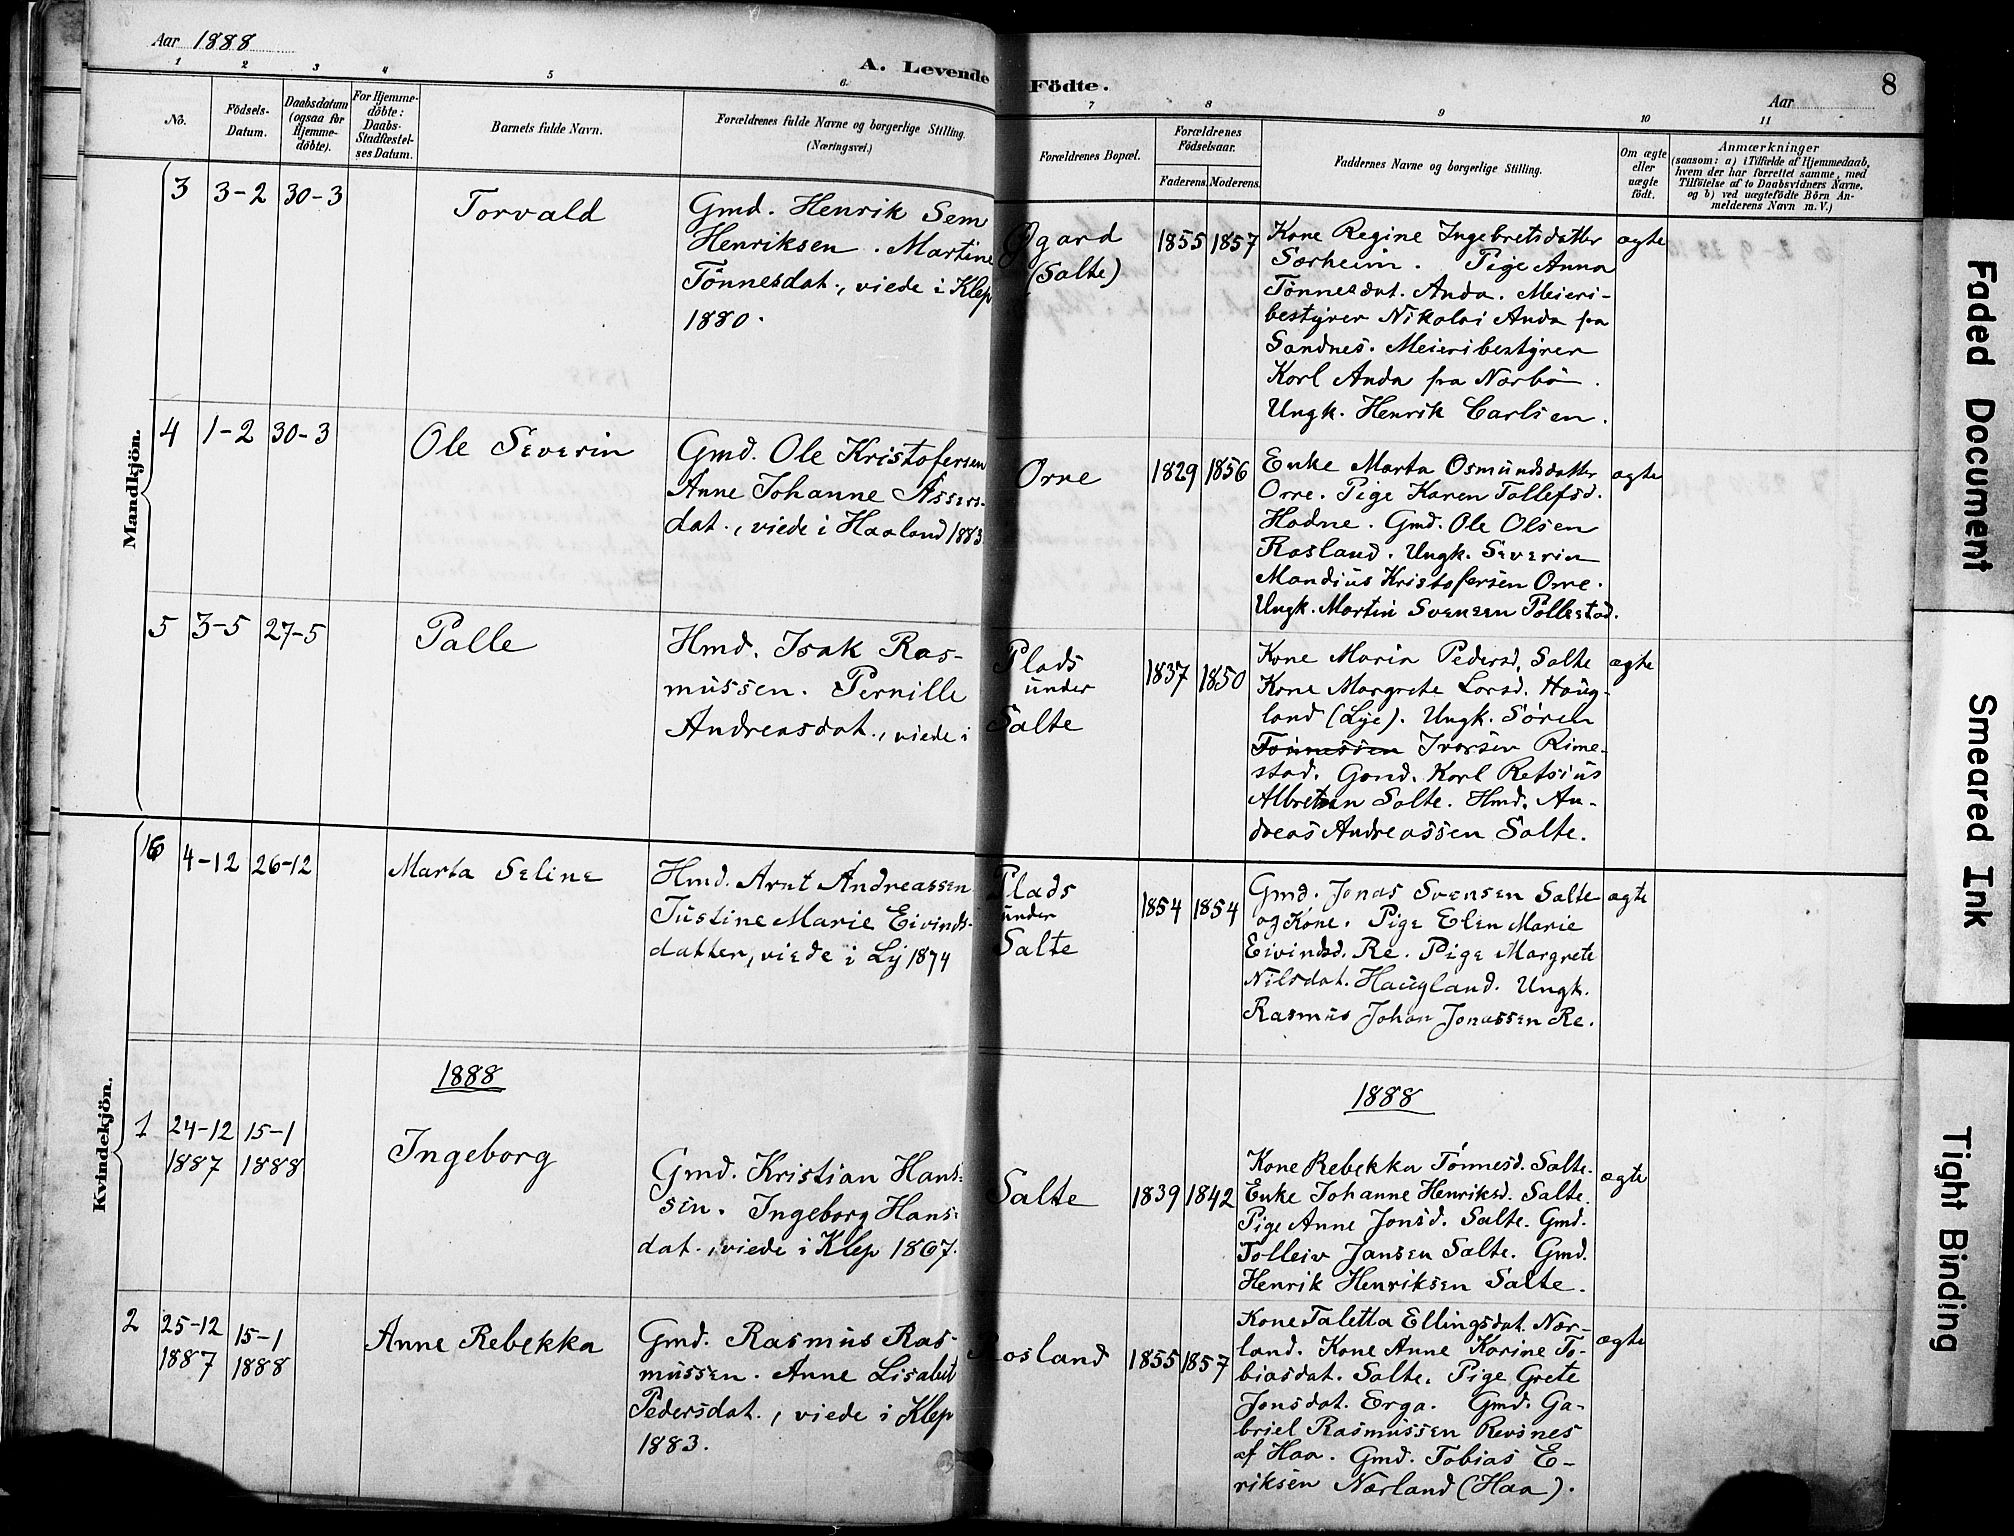 Aar 1888
A. Levende Födte.
8
Aar
1
2
3
4
5
6
7
8
9
10
11
No.
Födsels-
Datum.
Daabsdatum
(ogsaa for
Hjemme-
döbte).
For Hjemme-
döbte:
Daabs-
Stadfæstel-
ses Datum.
Barnets fulde Navn.
Forældrenes fulde Navne og borgerlige Stilling.
(Næringsvei.)
Forældrenes Bopæl.
Forældrenes
Födselsaar.
Faderens.
Moderens.
Faddernes Navne og borgerlige Stilling.
Om ægte
eller
uægte
födt.
Anmærkninger
(saasom: a) i Tilfælde af Hjemmedaab,
hvem der har forrettet samme, med
Tilföielse af to Daabsvidners Navne,
og b) ved uægtefödte Börn An-
melderens Navn m. V.)
Mandkjön.
3
3-2
30-3
Torvald
Gmd. Henrik Sem
Henriksen. Martine
Tönnesdat., viede i Klep
1880.
Øgard
(Salte)
1855
1857
Kone Regine Ingebretsdatter
Særheim. Pige Anna
Tönnesdat. Anda. Meieri-
bestyrer Nikolai Anda fra
Sandnes. Meieribestyrer
Karl Anda fra Nærbö.
Ungk. Henrik Carlsen.
ægte
4
1-2
30-3
Ole Severin
Gmd. Ole Kristofersen
Anne Johanne Assers-
dat., viede i Haaland 1883
Orre
1829
1856
Enke Marta Osmundsdatter
Orre. Pige Karen Tollefsd.
Hodne. Gmd. Ole Olsen
Rosland. Ungk. Severin
Mandius Kristofersen Orre.
Ungk. Martin Svensen Pollestad.
ægte
5
3-5
27-5
Palle
Hmd. Isak Ras-
mussen. Pernille
Andreasdat., viede i
Plads
under
Salte
1837
1850
Kone Maria Pedersd. Salte
Kone Margrete Larsd. Haug-
land (Lye). Ungk. Sören
Tönnessen Ivarsen Rime-
stad. Gmd. Karl Refsius
Albretsen Salte. Hmd. An-
dreas Andreassen Salte.
ægte
16
4-12
26-12
Marta Seline
Hmd. Arnt Andreassen
Justine Marie Eivinds-
datter, viede i Ly 1874
Plads
under
Salte
1854
1854
Gmd. Jonas Svensen Salte
og Kone. Pige Elen Marie
Eivindsd. Re. Pige Margrete
Nilsdat. Haugland. Ungk.
Rasmus Johan Jonassen Re.
ægte
Kvindekjön.
1888
1888
1
24-12
1887
15-1
1888
Ingeborg
Gmd. Kristian Hans-
sen. Ingeborg Hans-
dat., viede i Klep 1867.
Salte
1839
1842
Kone Rebekka Tönnesd. Salte.
Enke Johanne Henriksd. Salte.
Pige Anne Jonsd. Salte. Gmd.
Tolleiv Jansen Salte. Gmd.
Henrik Henriksen Salte.
ægte
2
25-12
1887
15-1
1888
Anne Rebekka
Gmd. Rasmus Ras-
mussen. Anne Lisabet
Pedersdat., viede i Klep
1883.
Rosland
1855
1857
Kone Taletta Ellingsdat. Nær-
land. Kone Anne Karine To-
biasdat. Salte. Pige Grete
Jonsdat. Erga. Gmd. Ga-
briel Rasmussen Revsnes
af Haa. Gmd. Tobias E-
riksen Nærland (Haa).
ægte
Faded Document
Smeared Ink
Tight Binding